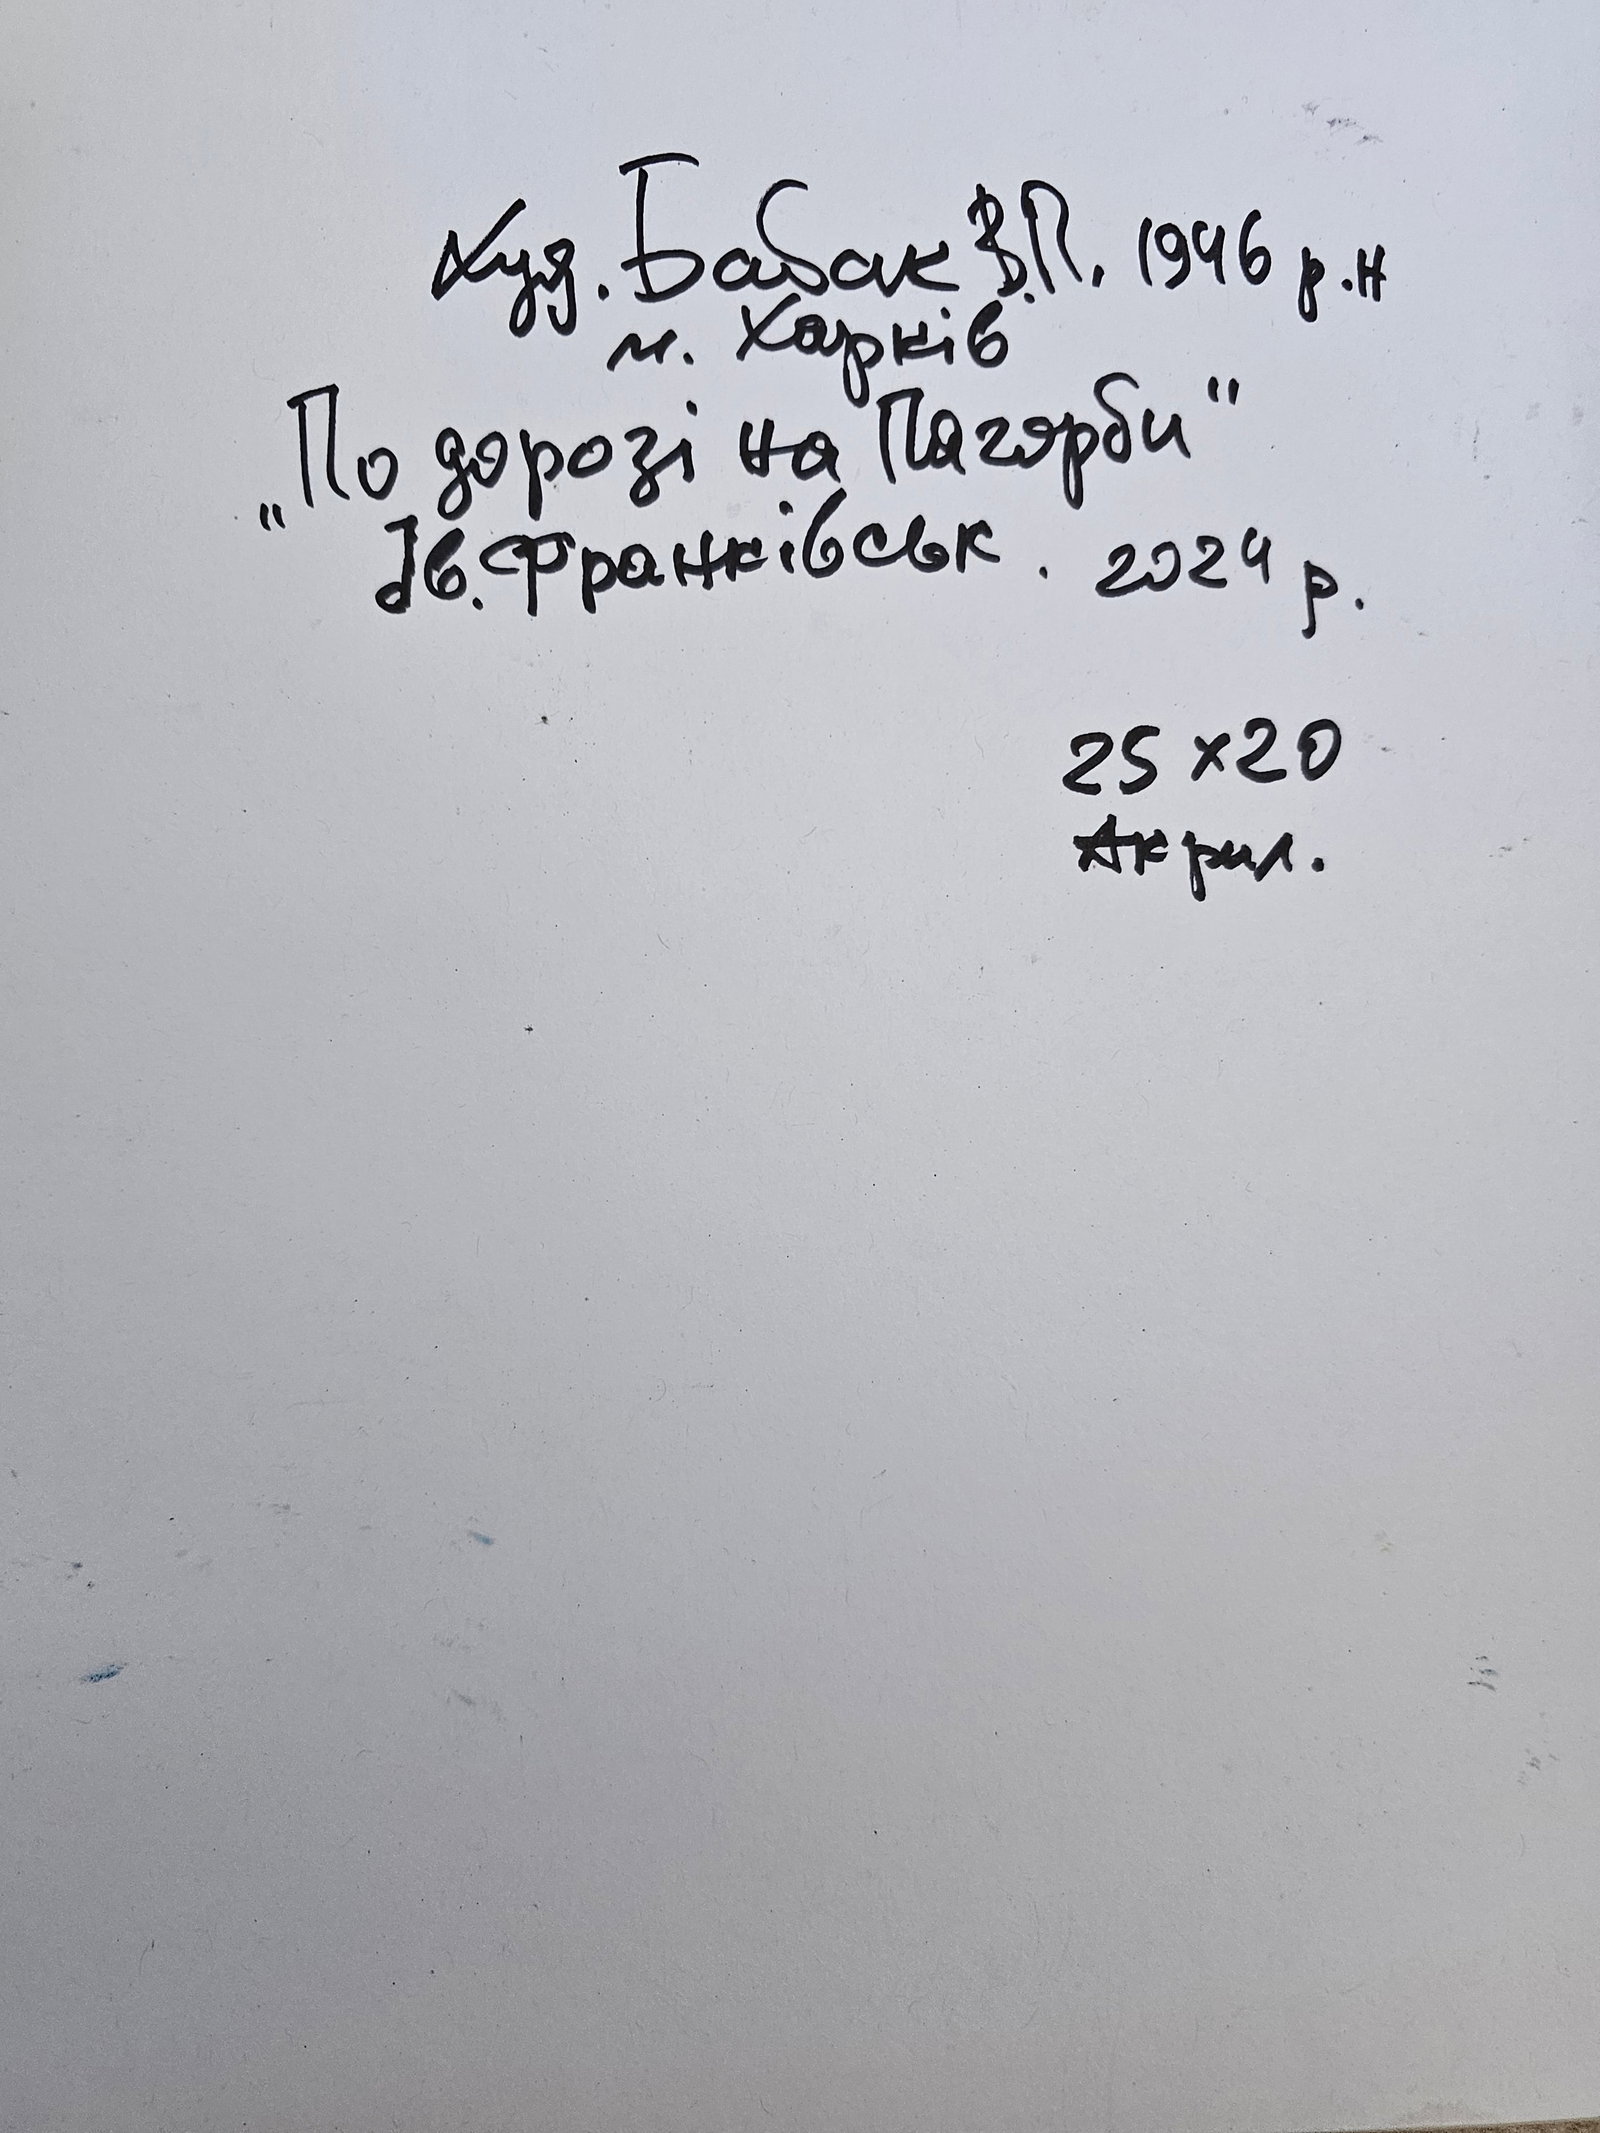 Худ. Бабак В.П. 1946 р.н
м. Харків
„По дорозі на Пагорби"
Ів. Франківськ. 2024 р.
25 x 20
Акрил.